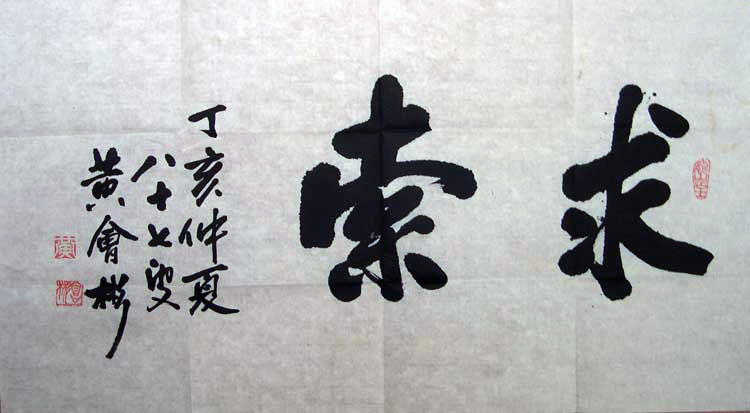 求索
丁亥仲夏
八十七叟
黄會彬